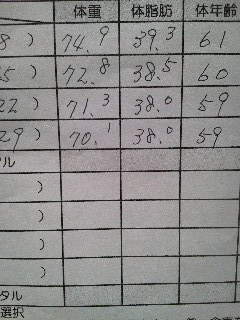 体重 体脂肪 体年齢
8) 74.9 39.3 61
5) 72.8 38.5 60
22) 71.3 38.0 59
29) 70.1 38.0 59
)
)
)
)
タル
選択